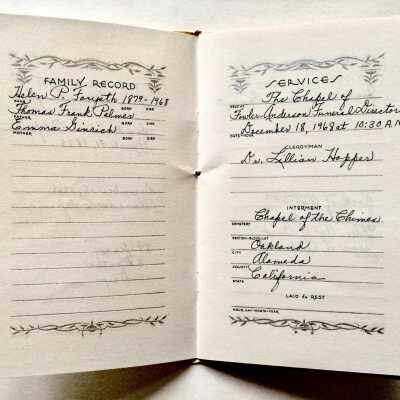 FAMILY RECORD
Helen P. Forsyth 1879-1968
NAME BORN DIED
Thomas Frank Palmer
FATHER BORN DIED
Emma Ginrich
MOTHER BORN DIED
SERVICES
The Chapel of
HELD AT
Fowler-Anderson Funeral Director
DATE-HOUR
December 18, 1968 at 10:30 A.M
CLERGYMAN
Dr. Lillian Hopper
INTERMENT
Chapel of the Chimes
CEMETERY
SECTION-BLOCK-LOT
Oakland
CITY
Alameda
COUNTY
California
STATE
LAID to REST
HOUR-DAY-MONTH-YEAR